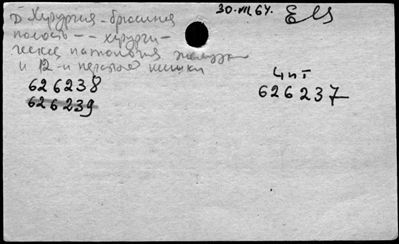 30.VII.64.
Д Хирургия - брюшная
полость - - хирурги-
ческая патология желудка
и 12-и перстной кишки
626238
626239
Чит
626237